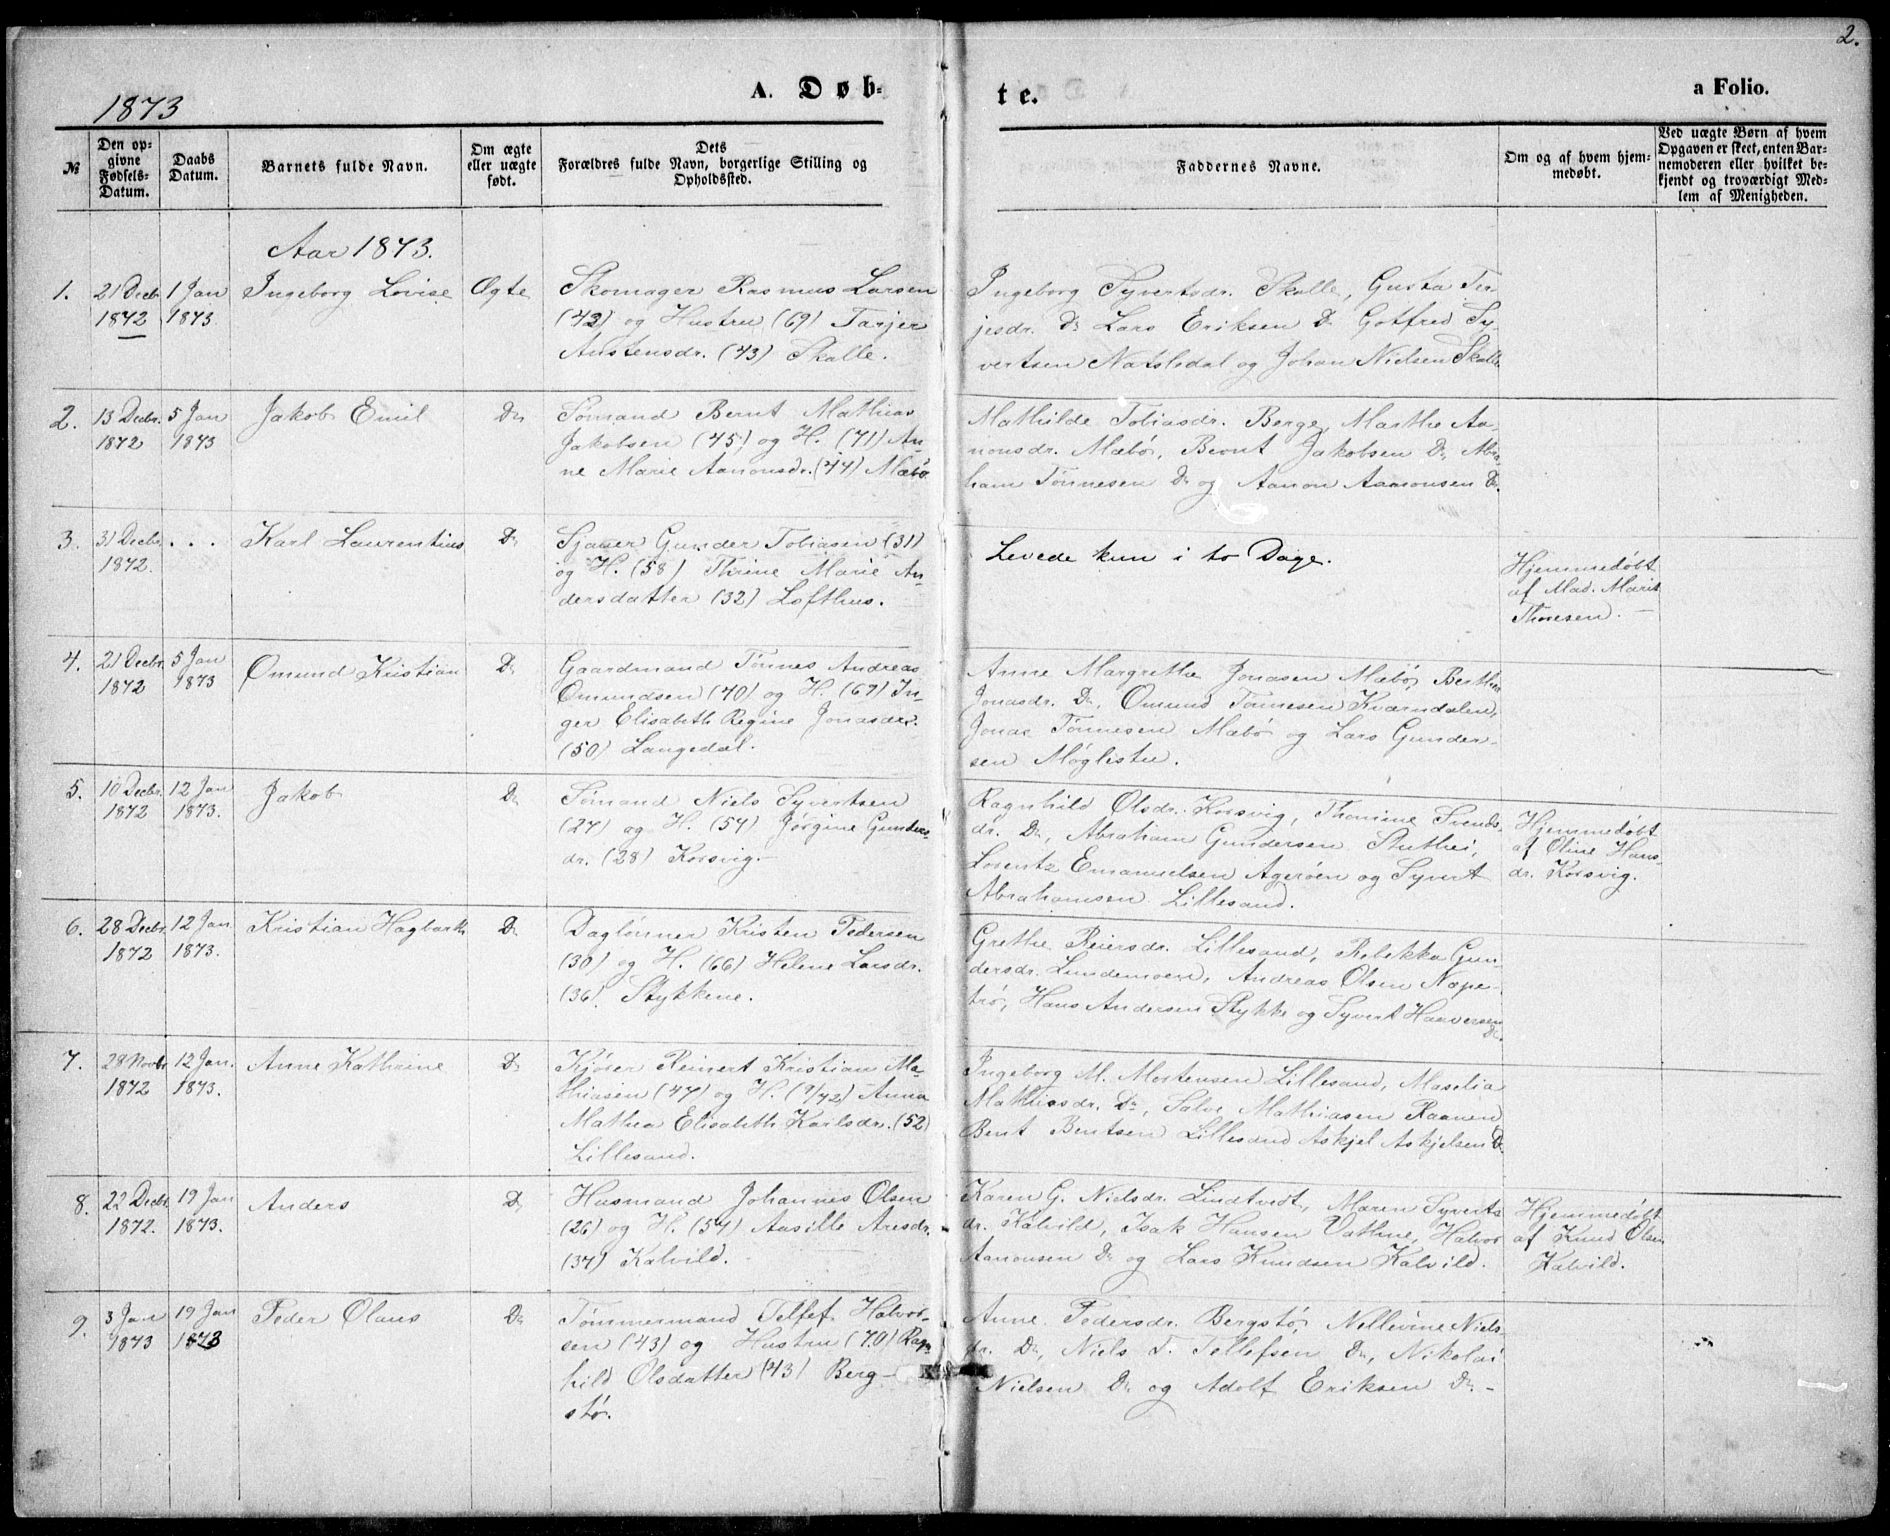 2.
1873
A. Døb-
te.
a Folio.
№
Den op-
givne
Fødsels-
Datum.
Daabs
Datum.
Barnets fulde Navn.
Om ægte
eller uægte
født.
Dets
Forældres fulde Navn, borgerlige Stilling og
Opholdssted.
Faddernes Navne.
Om og af hvem hjem-
medøbt.
Ved uægte Børn af hvem
Opgaven er skeet, enten Bar-
nemoderen eller hvilket be-
kjendt og troværdigt Med-
lem af Menigheden.
Aar 1873.
1.
21 Decbr
1872
1 Jan
1873
Ingeborg Lovise
Ægte
Skomager Rasmus Larsen
(42) og Hustru (69) Tarjer
Austensdr. (43) Skalle.
Ingeborg Syvertsdr. Skalle, Gusta Ter-
jesdr. Do Lars Eriksen Do Gotfred Sy-
vertsen Natsledal og Johan Nielsen Skalle
2.
13 Decbr.
1872
5 Jan
1873
Jakob Emil
Do
Sømand Bernt Mathias
Jakobsen (45) og H. (71) An-
ne Marie Aanonsdr. (44) Mæbø
Mathilde Tobiasdr. Berge, Marthe Aa-
nonsdr. Mæbø, Bernt Jakobsen Do, Abra-
ham Tønnesen Do og Aanon Aanonsen Do.
3.
31 Decbr.
1872.
. . .
Karl Laurentius
Do
Sjauer Gunder Tobiasen (31)
og H. (58) Thrine Marie An-
dersdatter (32) Lofthus.
Levede kun i to Dage.
Hjemmedøbt
af Mad. Marie
Thoresen.
4.
21 Decbr.
1872
5 Jan
1873
Omund Kristian
Do
Gaardmand Tønnes Andreas
Omundsen (40) og H. (69) In-
ger Elisabeth Regine Jonasdr.
(50) Langedal.
Anne Margrethe Jonasen Mæbø, Berthe
Jonasdr. Do, Omund Tønnesen Kværndalen,
Jonas Tønnesen Mæbø og Lars Gunder-
sen Møglestu.
5.
10 Decbr.
1872
12 Jan
1873.
Jakob
Do
Sømand Niels Syvertsen
(27) og H. (54) Jørgine Gunders-
dr. (28) Korsvig.
Ragnhild Olsdr. Korsvig, Thomine Svends-
dr. Do, Abraham Gundersen Stuthei,
Lorentz Emanuelsen Agerøen og Syvert
Abrahamsen Lillesand.
Hjemmedøbt
af Oline Hans-
dr. Korsvig.
6.
28 Decbr.
1872
12 Jan
1873.
Kristian Hagbarth
Do
Daglønner Kristen Pedersen
(30) og H. (66) Helene Larsdr.
(36) Stykkene.
Grethe Reiersdr. Lillesand, Rebekka Gun-
dersdr. Lundemoen, Andreas Olsen Næpe-
trø, Hans Andersen Stykke og Syvert Haaversen
Do.
7.
28 Novbr.
1872
12 Jan.
1873.
Anne Kathrine
Do
Kjøser Reinert Kristian Ma-
thiasen (47) og H. (9/72) Anna
Mathea Elisabeth Karlsdr. (52)
Lillesand.
Ingeborg M. Mortensen Lillesand, Maselia
Mathiasdr. Do, Salve Mathiasen Raanen
Bent Bentsen Lillesand Askjel Askjelsen Do
8.
22 Decbr.
1872.
19 Jan
1873.
Anders
Do
Husmand Johannes Olsen
(26) og H. (54) Aasille Aresdr.
(37) Kalvild.
Karen G. Nielsdr. Lindtvedt, Maren Syverts-
dr. Kalvild, Isak Hansen Vathne, Halvor
Aanonsen Do og Lars Knudsen Kalvild.
Hjemmedøbt
af Knud Olsen
Kalvild.
9.
3 Jan
1873
19 Jan
1873
Peder Olaus
Do
Tømmermand Tellef Halvor-
sen (43) og Hustru (70) Ragn-
hild Olsdatter (43) Berg-
stø.
Anne Pedersdr. Bergstø, Nellevine Niels-
dr. Do, Niels T. Tellefsen Do, Nikolai
Nielsen Do og Adolf Eriksen Do -